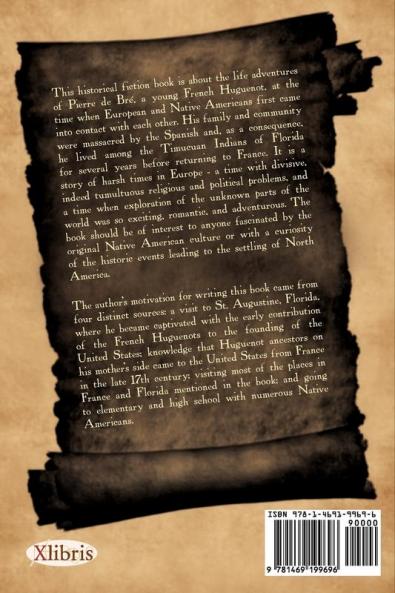 This historical fiction book is about the life adventures
of Pierre de Bré, a young French Huguenot, at the
time when European and Native Americans first came
into contact with each other. His family and community
were massacred by the Spanish and, as a consequence,
he lived among the Timucuan Indians of Florida
for several years before returning to France. It is a
story of harsh times in Europe - a time with divisive,
indeed tumultuous religious and political problems, and
a time when exploration of the unknown parts of the
world was so exciting, romantic, and adventurous. The
book should be of interest to anyone fascinated by the
original Native American culture or with a curiosity
of the historic events leading to the settling of North
America.
The author's motivation for writing this book came from
four distinct sources: a visit to St. Augustine, Florida,
where he became captivated with the early contribution
of the French Huguenots to the founding of the
United States; knowledge that Huguenot ancestors on
his mothers side came to the United States from France
in the late 17th century; visiting most of the places in
France and Florida mentioned in the book; and going
to elementary and high school with numerous Native
Americans.
Xlibris
ISBN 978-1-4691-9969-6
90000
9 781469 199696